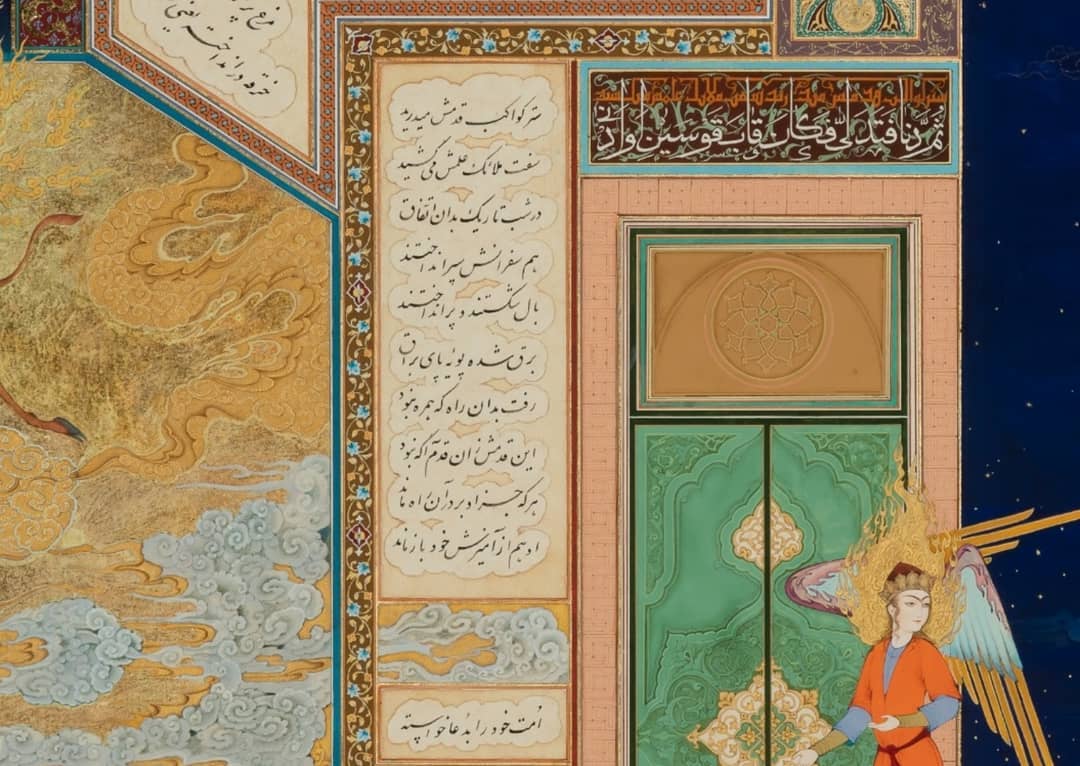 مرغ پر
خرقه در انداخته یعنی
ثم دنا فتدلی فکان قاب قوسین او ادنی
ستر کواکب قدمش میدرید
سفت ملائک علمش میکشید
در شب تاریک بدان اتفاق
هم سفرانش سپر انداختند
بال شکستند و پر انداختند
برق شده پویهٔ پای براق
رفت بدان راه که همره نبود
این قدمش زان قدم آگه نبود
هرکه جز او بر در آن راه ماند
او هم از آمیزش خود باز ماند
امت خود را بدعا خواسته